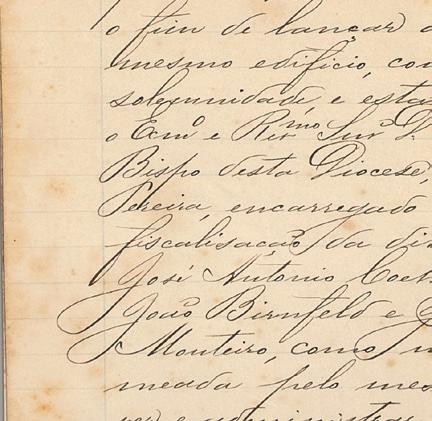 o fim de lançar a
mesmo edificio, con
solemnidade, e esta
o Exmo e Revmo Snr D.
Bispo desta Diocese,
Pereira, encarregado
fiscalisação da di
José Antonio Coel
João Birnfeld e
Monteiro, como m
meada pelo mes
administrar